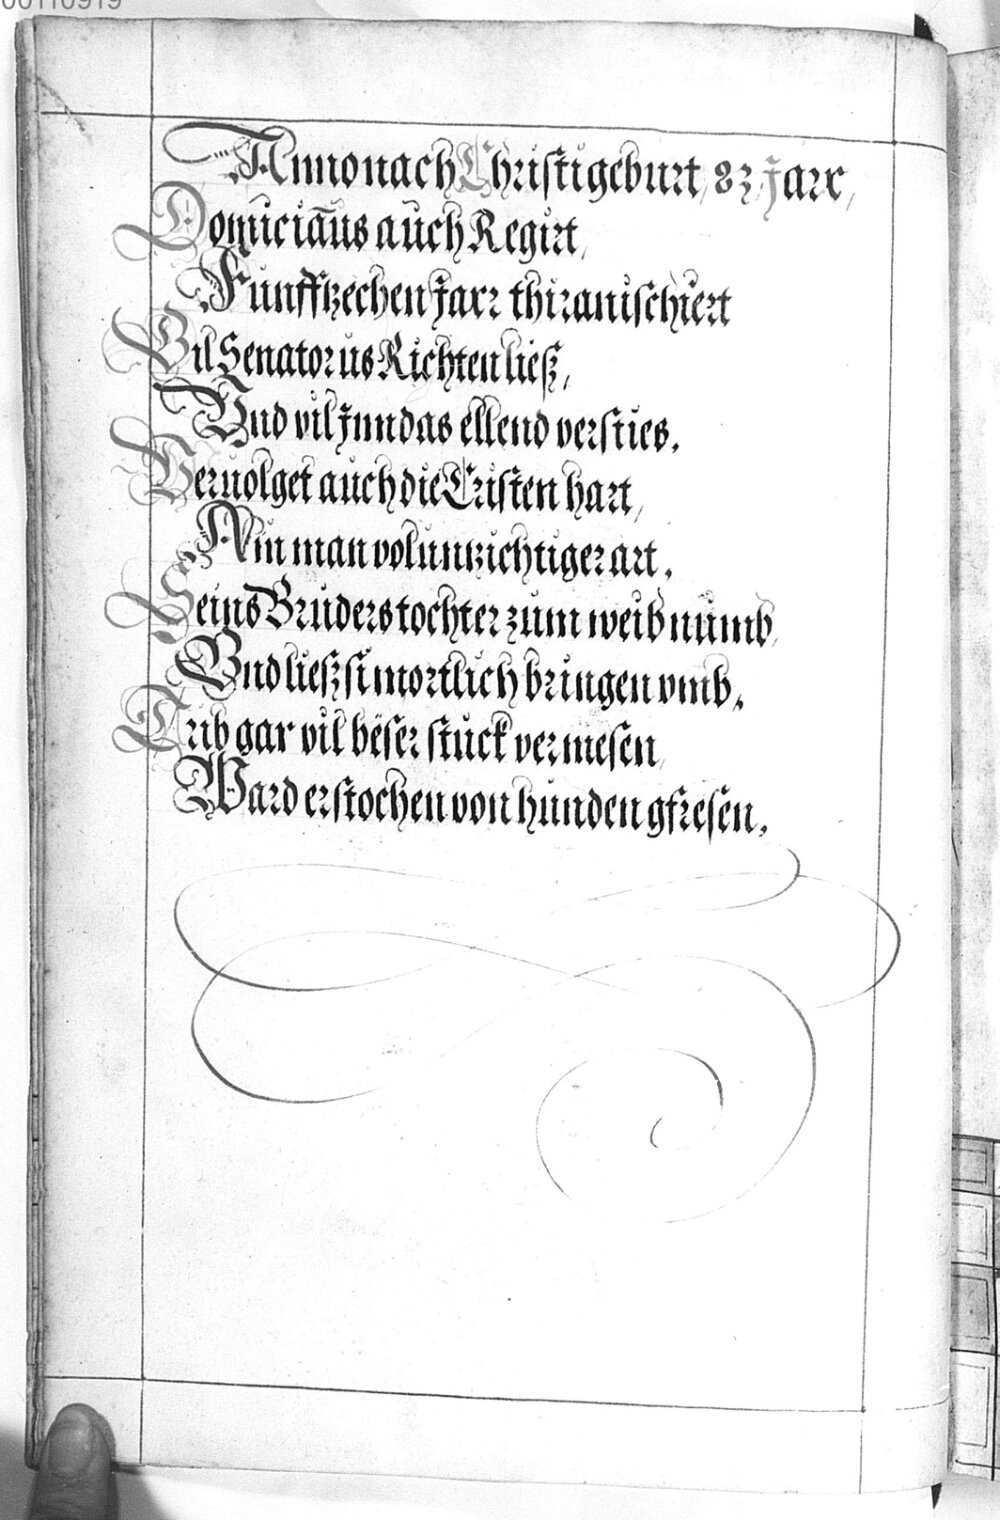 00110919
Anno nach Christi geburt, 83 Jare,
Domicianus auch Regirt,
Funfftzechen Jarr thiranischiert
Vil Senatorus Richten ließ,
Vnd vil Jnn das ellend versties.
Veruolget auch die Cristen hart,
Ain man vol unzichtiger art.
Seins Bruders tochter zum weib numb,
Vnd ließ si mortlich bringen vmb.
Trib gar vil beser stuck vermesen,
Ward erstochen von hunden gfresen.